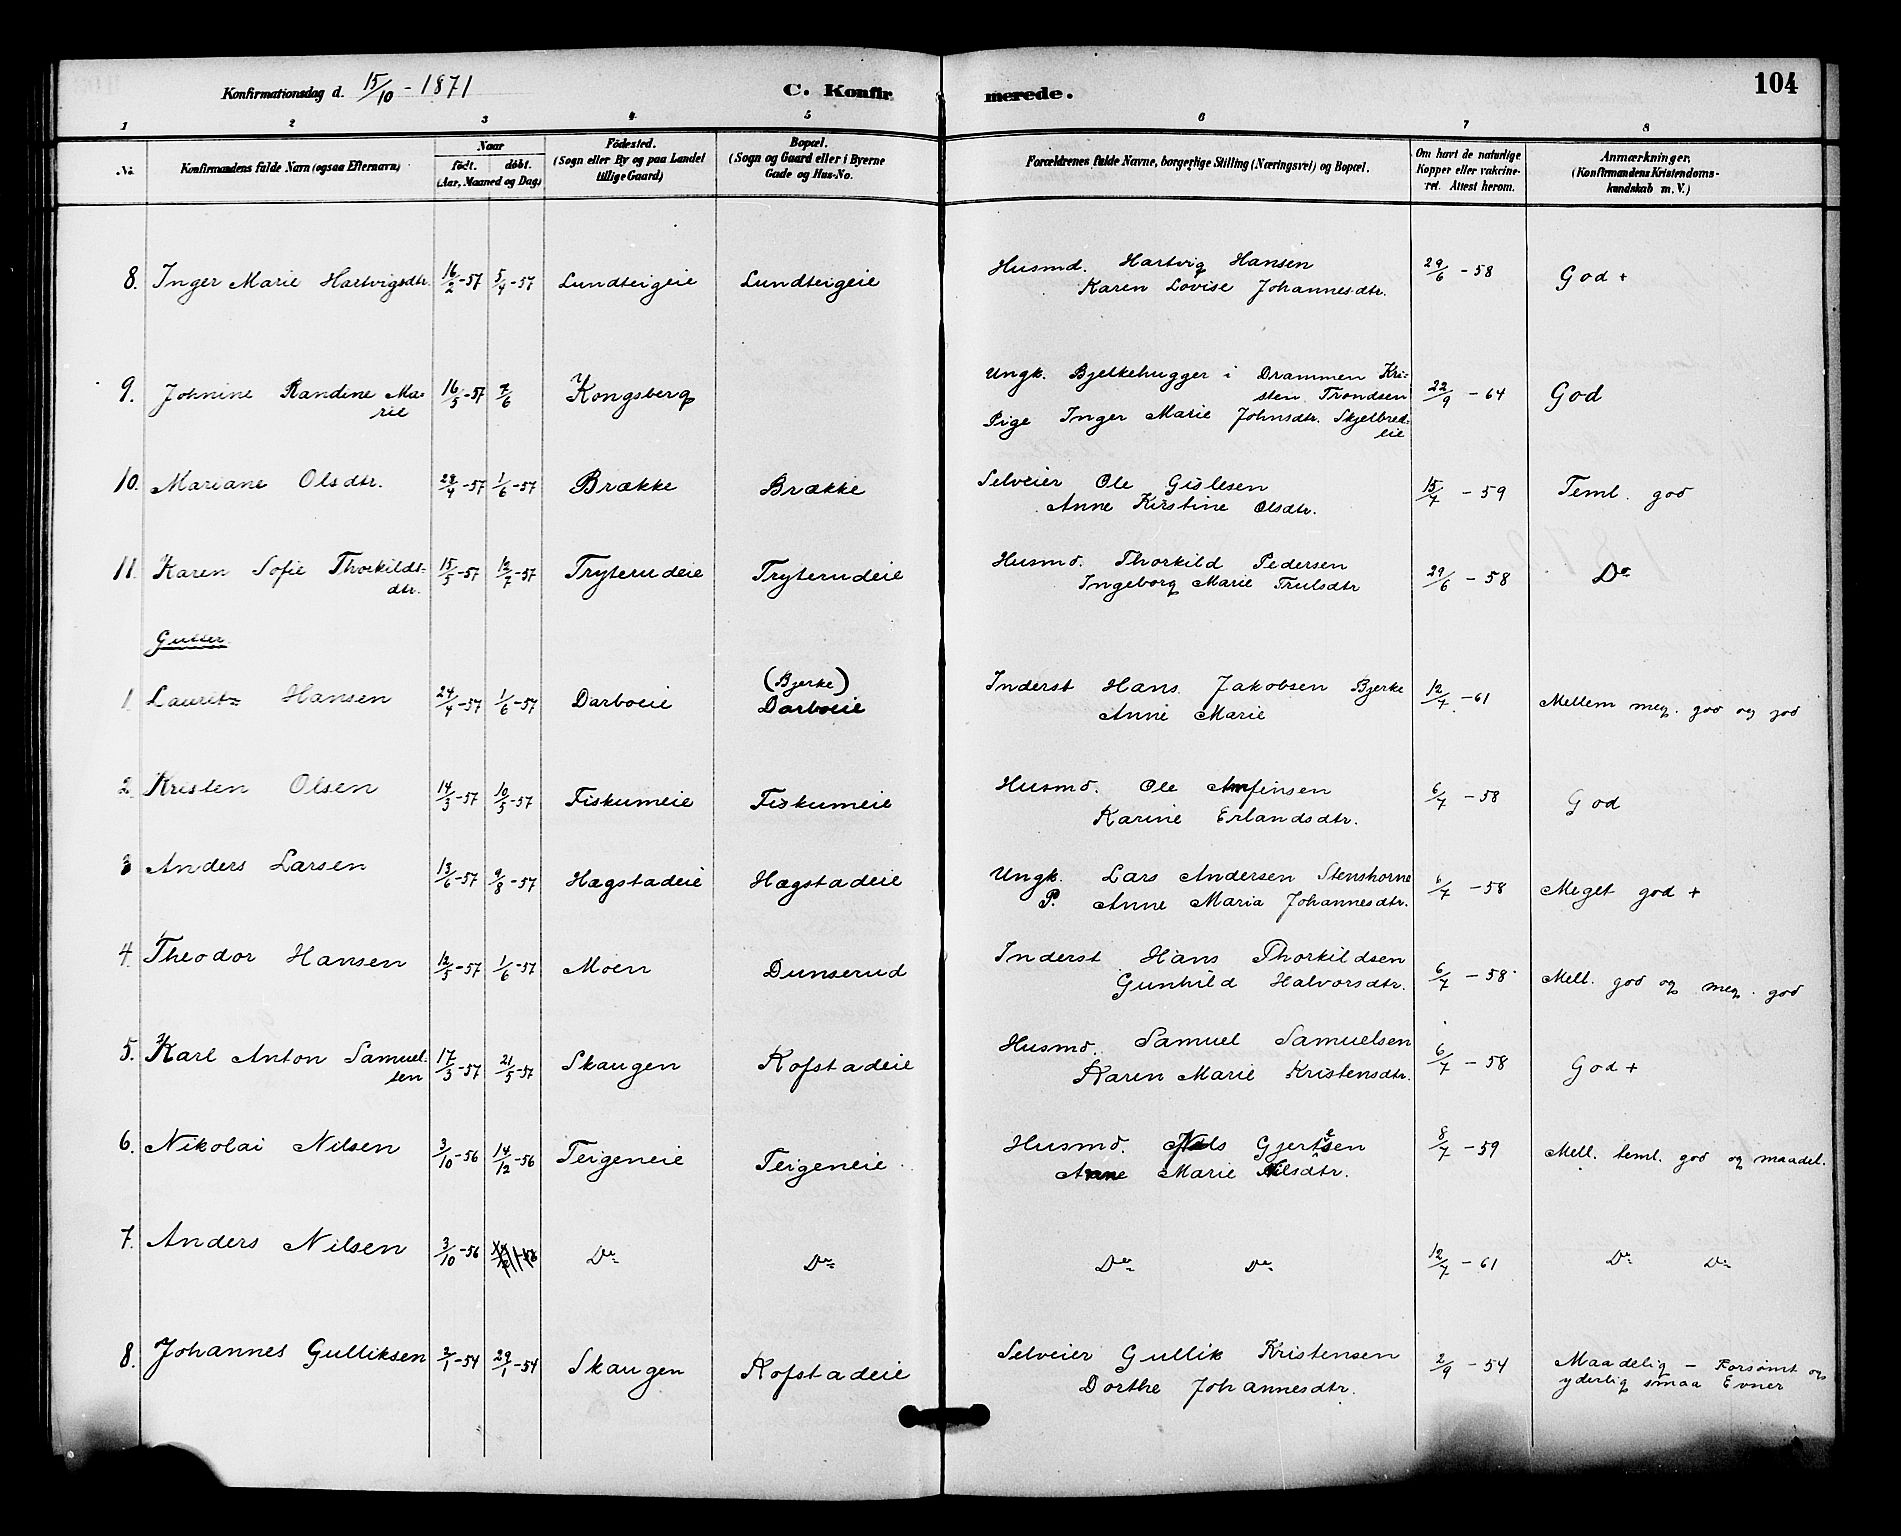 Konfirmationsdag d. 15/10 - 1871 C. Konfir merede. 104
1 2 3 4 5 6 7 8
No. Konfirmandens fulde Navn (ogsaa Efternavn) Naar födt. döbt. (Aar, Maaned og Dag) Födested. (Sogn eller By og paa Landet tillige Gaard) Bopæl. (Sogn og Gaard eller i Byerne Gade og Hus-No. Forældrenes fulde Navne, borgerlige Stilling (Næringsvei) og Bopæl. Om havt de naturlige Kopper eller vakcineret. Attest herom. Anmærkninger. (Konfirmandens Kristendomskundskab m. V.)
8. Inger Marie Hartvigsdtr. 16/2-57 5/4-57 Lundteigeie Lundteigeie Husmd. Hartvig Hansen 29/6 - 58 God +
Karen Lovise Johannesdtr.
9. Johnine Randine Ma- 16/5-57 7/6 Kongsberg Ungk. Bjelkehugger i Drammen Kri- 22/9 - 64 God
rie sten Trondsen
Pige Inger Marie Johnsdtr. Skjelbred-
eie
10. Mariane Olsdtr. 29/4-57 1/6-57 Brække Brække Selveier Ole Gislesen 15/7 - 59 Teml. god
Anne Kirstine Olsdtr.
11. Karen Sofie Thorkilds- 15/5-57 12/7-57 Tryterudeie Tryterudeie Husmd. Thorkild Pedersen 29/6 - 58 Do
dtr. Ingeborg Marie Trulsdtr
Gutter
1. Lauritz Hansen 24/4-57 1/6-57 Darboeie (Bjerke) Darboeie Inderst Hans Jakobsen Bjerke 12/7 - 61 Mellem meg. god og god
Anne Marie
2. Kristen Olsen 14/3-57 10/5-57 Fiskumeie Fiskumeie Husmd. Ole Amfinsen 6/7 - 58 God
Karine Erlandsdtr.
3 Anders Larsen 13/6-57 9/8-57 Hægstadeie Hægstadeie Ungk. Lars Andersen Stenshorne 6/7 - 58 Meget god +
P. Anne Maria Johannesdtr.
4. Theodor Hansen 12/5-57 1/6-57 Moen Dunserud Inderst Hans Thorkildsen 6/7 - 58 Mell. god og meg. god
Gunhild Halvorsdtr.
5. Karl Anton Samuel- 17/3-57 21/5-57 Skaugen Kofstadeie Husmd. Samuel Samuelsen 6/7 - 58 God +
sen Karen Marie Kristensdtr.
6. Nikolai Nilsen 3/10-56 14/12-56 Teigeneie Teigeneie Husmd. Nils Gjertsen 8/7 - 59 Mell. teml. god og maadel.
Anne Marie Nilsdtr.
7. Anders Nilsen 3/10-56 Do Do Do Do 12/7 - 61 Do Do
8. Johannes Gulliksen 3/1-54 29/1-54 Skaugen Kofstadeie Selveier Gullik Kristensen 2/9 - 54 Maadelig - Forsømt og
Dorthe Johannesdtr. yderlig smaa Evner